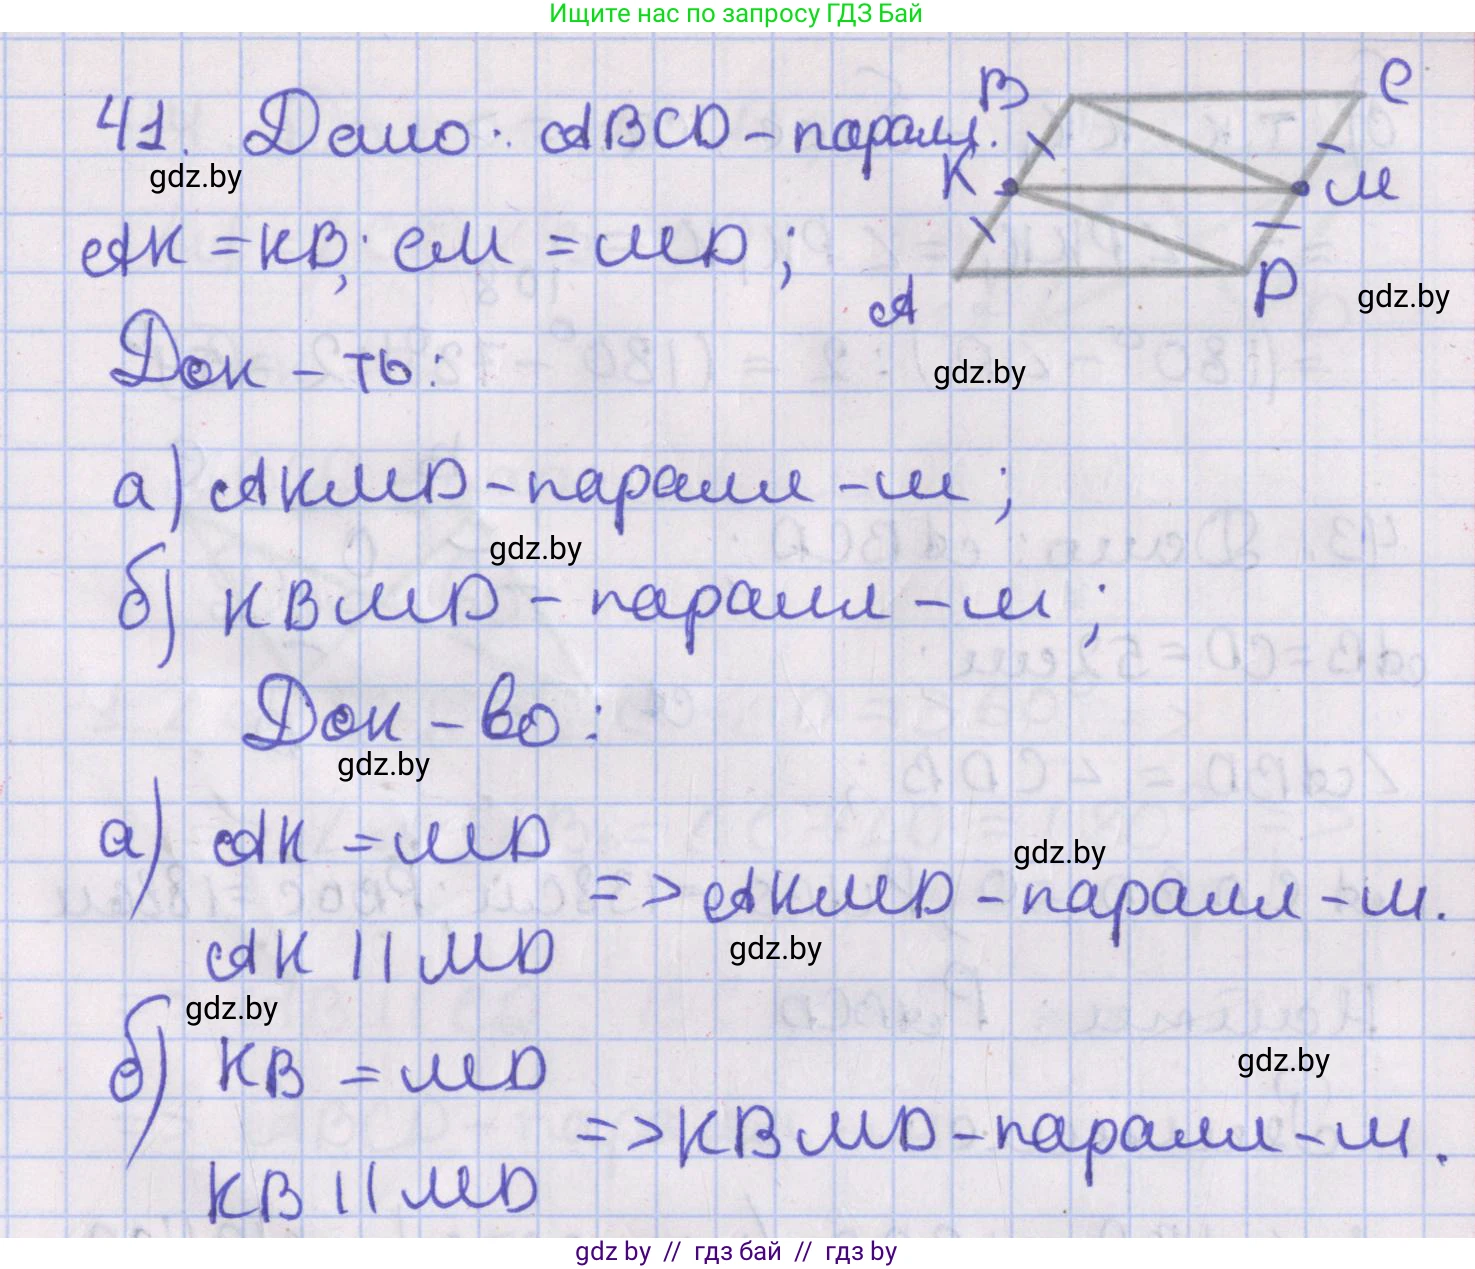 Ищите нас по запросу ГДЗ Бай
41. Дано: ABCD - паралл.
B C
gdz.by
K M
AK = KB; CM = MD;
A D
gdz.by
Док - ть:
gdz.by
а) AKMD - паралл - м;
gdz.by
б) KBMD - паралл - м;
Док - во:
gdz.by
а) AK = MD
gdz.by
=> AKMD - паралл - м.
AK || MD
gdz.by
gdz.by
б) KB = MD
gdz.by
=> KBMD - паралл - м.
KB || MD
gdz by // гдз бай // гдз by